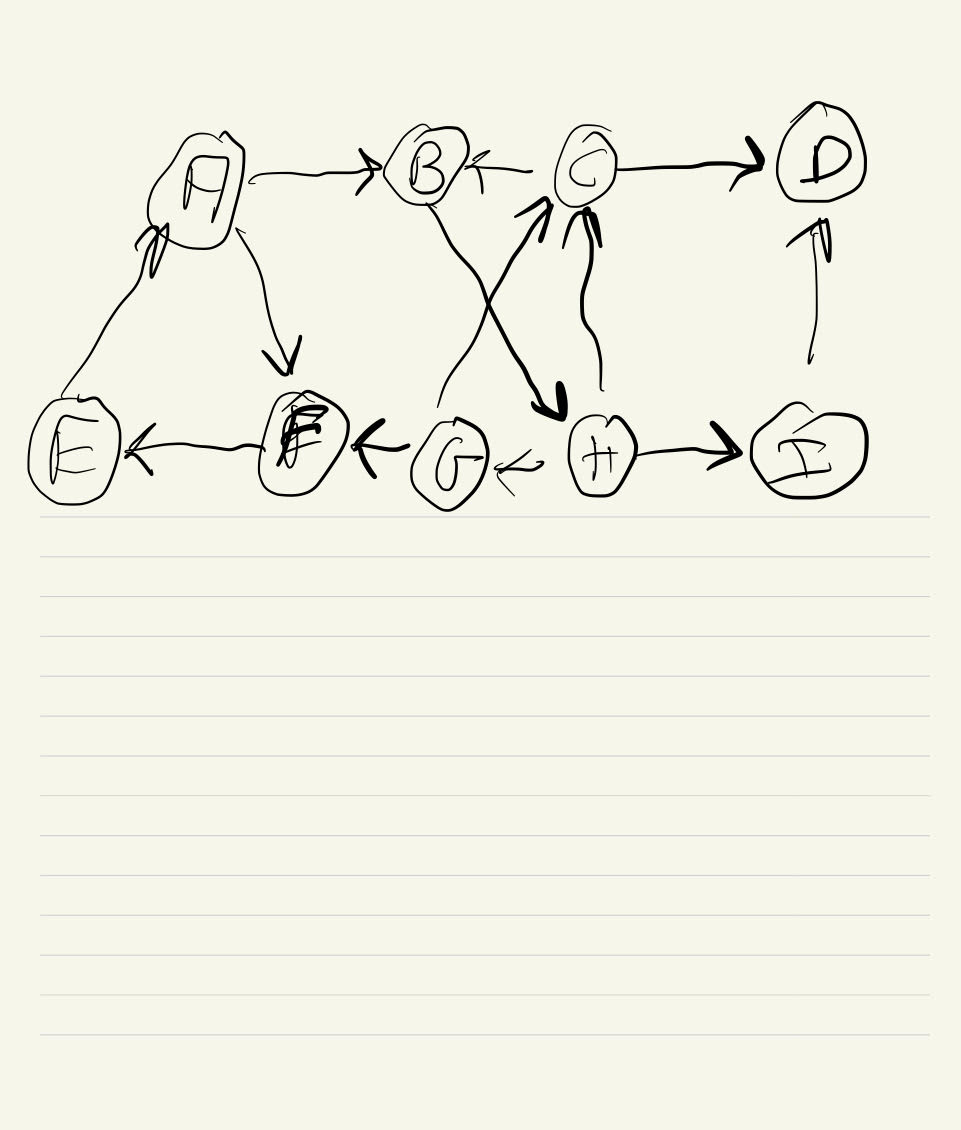 A B C D
E F G H I